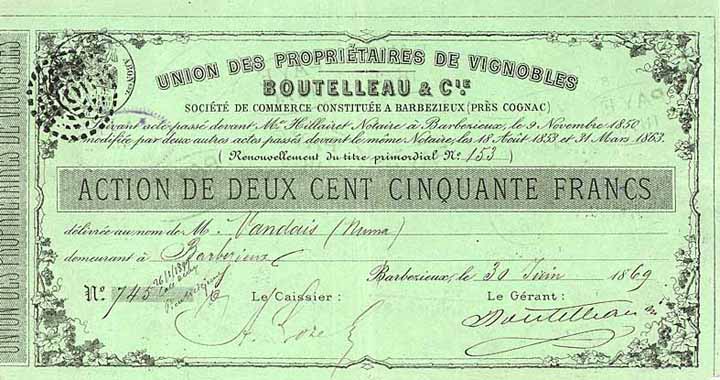 UNION DES PROPRIÉTAIRES DE VIGNOBLES
UNION DES PROPRIÉTAIRES DE VIGNOBLES
BOUTELLEAU & CIE
SOCIÉTÉ DE COMMERCE CONSTITUÉE A BARBEZIEUX (PRÈS COGNAC)
Suivant acte passé devant Me Hillairet Notaire à Barbezieux, le 9 Novembre 1850
modifiée par deux autres actes passés devant le même Notaire, les 18 Août 1853 et 31 Mars 1863.
(Renouvellement du titre primordial No 153)
ACTION DE DEUX CENT CINQUANTE FRANCS
délivrée au nom de M. Vandais (Numa)
demeurant à Barbezieux
Barbezieux, le 30 Juin 1869
No 745
Le Caissier : Le Gérant :
Boutelleau